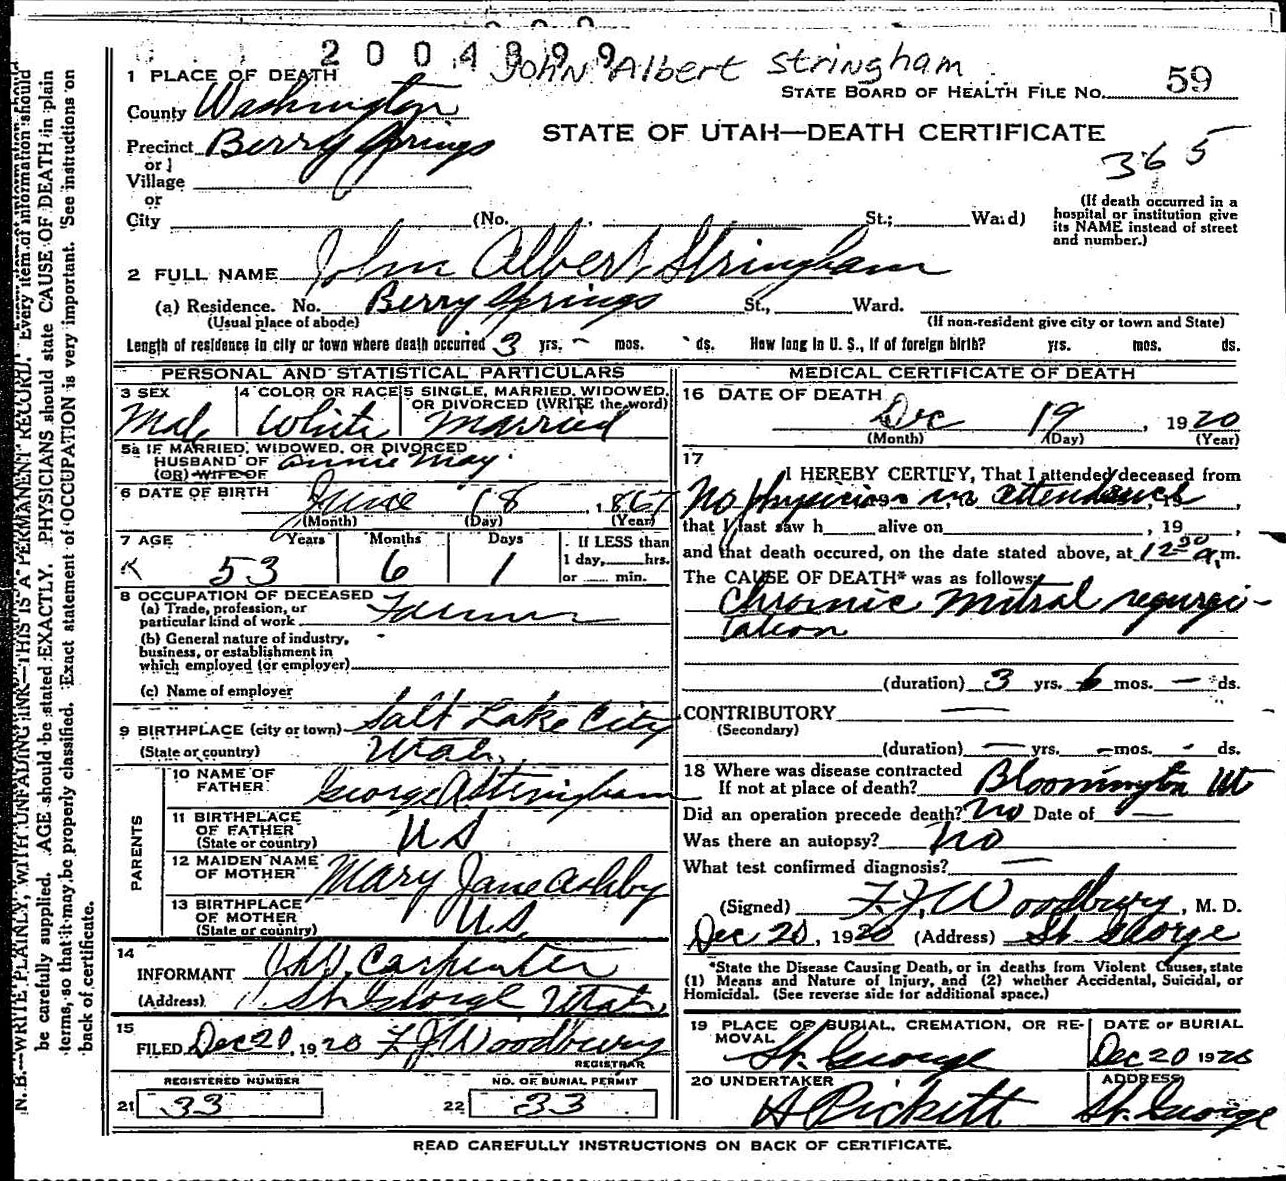 2004899
John Albert Stringham
1 PLACE OF DEATH
STATE BOARD OF HEALTH FILE NO. 59
County Washington
STATE OF UTAH—DEATH CERTIFICATE
Precinct Berry Springs
or
365
Village
or
City (No. , St.; Ward)
(If death occurred in a hospital or institution give its NAME instead of street and number.)
2 FULL NAME John Albert Stringham
(a) Residence. No. Berry Springs St., Ward.
(Usual place of abode) (If non-resident give city or town and State)
Length of residence in city or town where death occurred 3 yrs. - mos. ds. How long in U. S., if of foreign birth? yrs. mos. ds.
PERSONAL AND STATISTICAL PARTICULARS
3 SEX 4 COLOR OR RACE 5 SINGLE, MARRIED, WIDOWED, OR DIVORCED (WRITE the word)
White Married
5a IF MARRIED, WIDOWED, OR DIVORCED
HUSBAND OF Annie May
(OR) WIFE OF
6 DATE OF BIRTH June 18, 1867
(Month) (Day) (Year)
7 AGE Years Months Days If LESS than
1 day, hrs.
or min.
53 6 1
8 OCCUPATION OF DECEASED
(a) Trade, profession, or
particular kind of work Farmer
(b) General nature of industry,
business, or establishment in
which employed (or employer)
(c) Name of employer
9 BIRTHPLACE (city or town) Salt Lake City
(State or country) Utah
PARENTS
10 NAME OF FATHER George A Stringham
11 BIRTHPLACE OF FATHER (State or country) U S
12 MAIDEN NAME OF MOTHER Mary Jane Ashby
13 BIRTHPLACE OF MOTHER (State or country) U.S.
14
INFORMANT Carpenter
(Address) St. George Utah
15
FILED Dec 20, 1920 F. J. Woodbury
REGISTRAR
REGISTERED NUMBER NO. OF BURIAL PERMIT
21 33 22 33
MEDICAL CERTIFICATE OF DEATH
16 DATE OF DEATH
Dec 19, 1920
(Month) (Day) (Year)
17
I HEREBY CERTIFY, That I attended deceased from
No physician in attendance, 19
that I last saw h alive on , 19
and that death occured, on the date stated above, at 12 30 a.m.
The CAUSE OF DEATH* was as follows:
Chronic mitral regurgi-
tation
(duration) 3 yrs. 6 mos. - ds.
CONTRIBUTORY
(Secondary)
(duration) - yrs. - mos. - ds.
18 Where was disease contracted
If not at place of death? Bloomington Ut
Did an operation precede death? no Date of —
Was there an autopsy? no
What test confirmed diagnosis? —
(Signed) F. J. Woodbury, M. D.
Dec 20, 1920 (Address) St. George
*State the Disease Causing Death, or in deaths from Violent Causes, state
(1) Means and Nature of Injury, and (2) whether Accidental, Suicidal, or
Homicidal. (See reverse side for additional space.)
19 PLACE OF BURIAL, CREMATION, OR RE- DATE OF BURIAL
MOVAL
St. George Dec 20 1920
20 UNDERTAKER ADDRESS
A Pickett St. George
READ CAREFULLY INSTRUCTIONS ON BACK OF CERTIFICATE.
N. B.—WRITE PLAINLY, WITH UNFADING INK—THIS IS A PERMANENT RECORD. Every item of information should
be carefully supplied. AGE should be stated EXACTLY. PHYSICIANS should state CAUSE OF DEATH in plain
terms, so that it may be properly classified. Exact statement of OCCUPATION is very important. See instructions on
back of certificate.